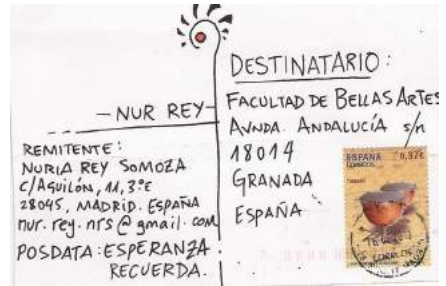 — NUR REY —
REMITENTE:
NURIA REY SOMOZA
C/AQUILÓN, 11, 3ºE
28045, MADRID. ESPAÑA
nur.rey.nrs@gmail.com
POSDATA: ESPERANZA
RECUERDA.
DESTINATARIO:
FACULTAD DE BELLAS ARTES
AVNDA. ANDALUCÍA s/n
18014
GRANADA
ESPAÑA
ESPAÑA 0,37€
CORREOS